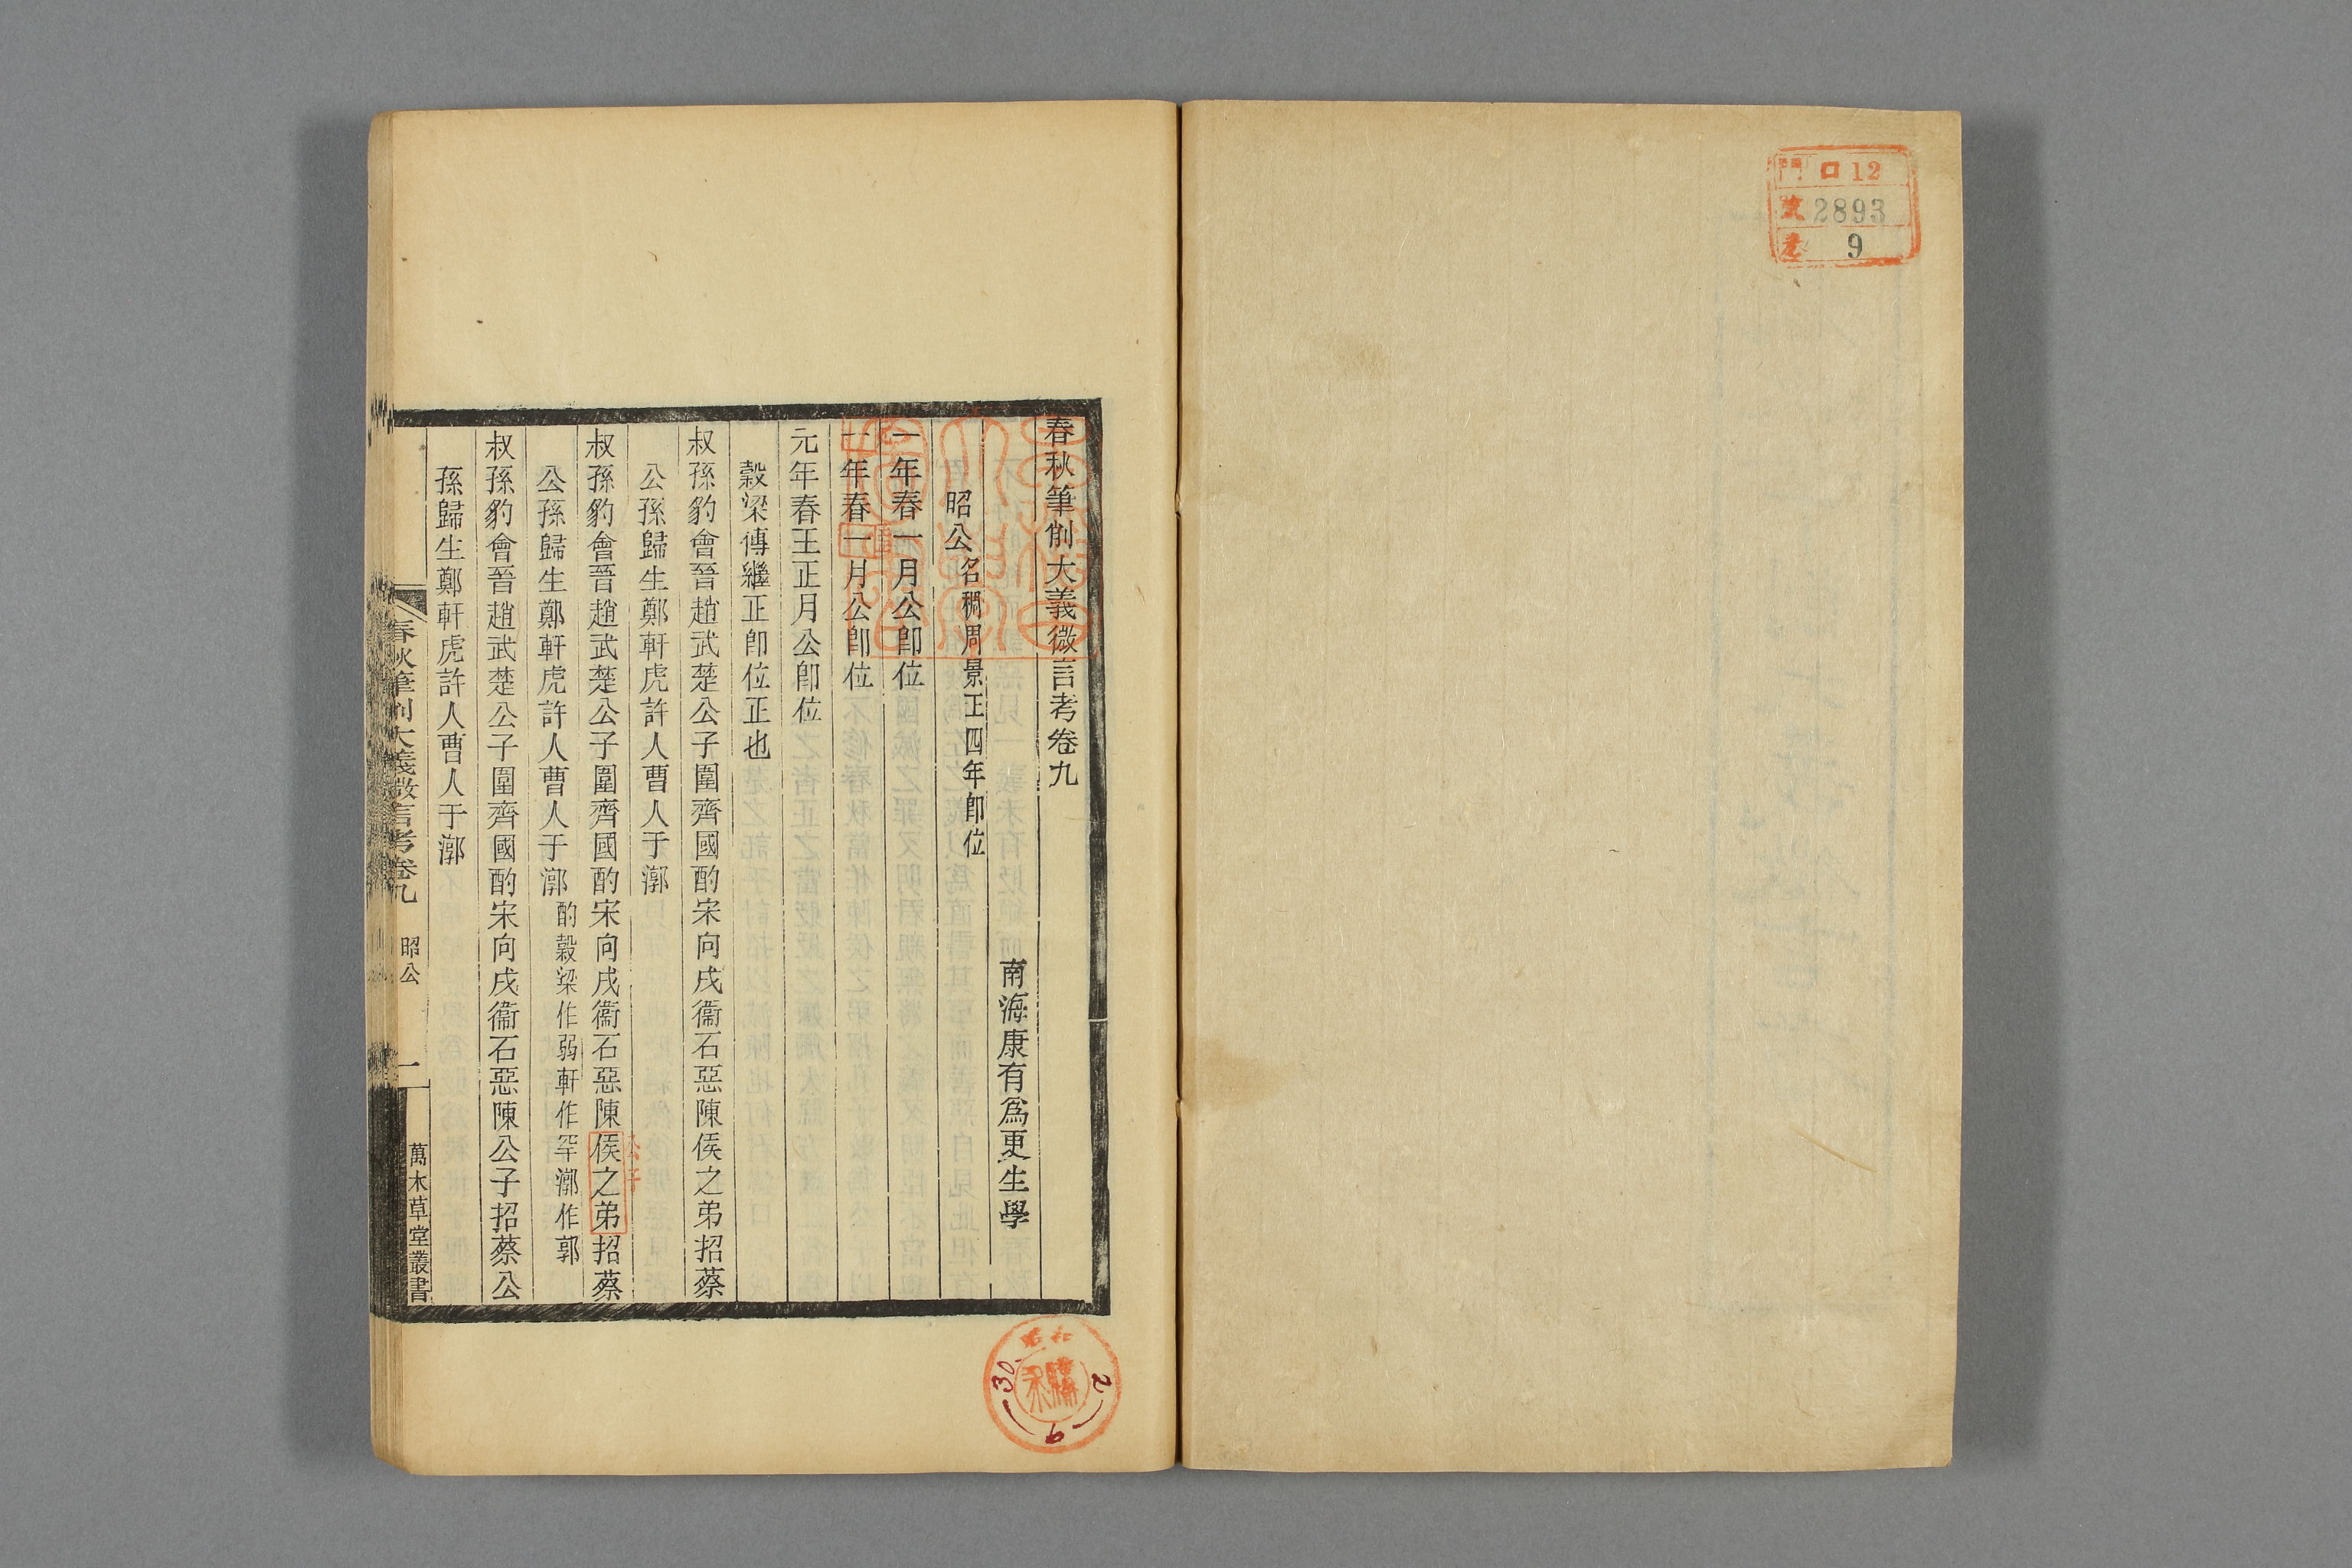 門 口 12
號 2893
卷 9
春秋筆削大義微言考卷九
南海康有為更生學
昭公名稠周景王四年卽位
一年春一月公卽位
一年春一月公卽位
元年春王正月公卽位
穀梁傳繼正卽位正也
叔孫豹會晉趙武楚公子圍齊國酌宋向戌衞石惡陳侯之弟招蔡
公孫歸生鄭軒虎許人曹人于漷
叔孫豹會晉趙武楚公子圍齊國酌宋向戌衞石惡陳侯之弟招蔡
公子
公孫歸生鄭軒虎許人曹人于漷酌穀梁作弱軒作罕漷作郭
叔孫豹會晉趙武楚公子圍齊國酌宋向戌衞石惡陳公子招蔡公
孫歸生鄭軒虎許人曹人于漷
春秋筆削大義微言考卷九 昭公 一 萬木草堂叢書
昭和
30
6
2